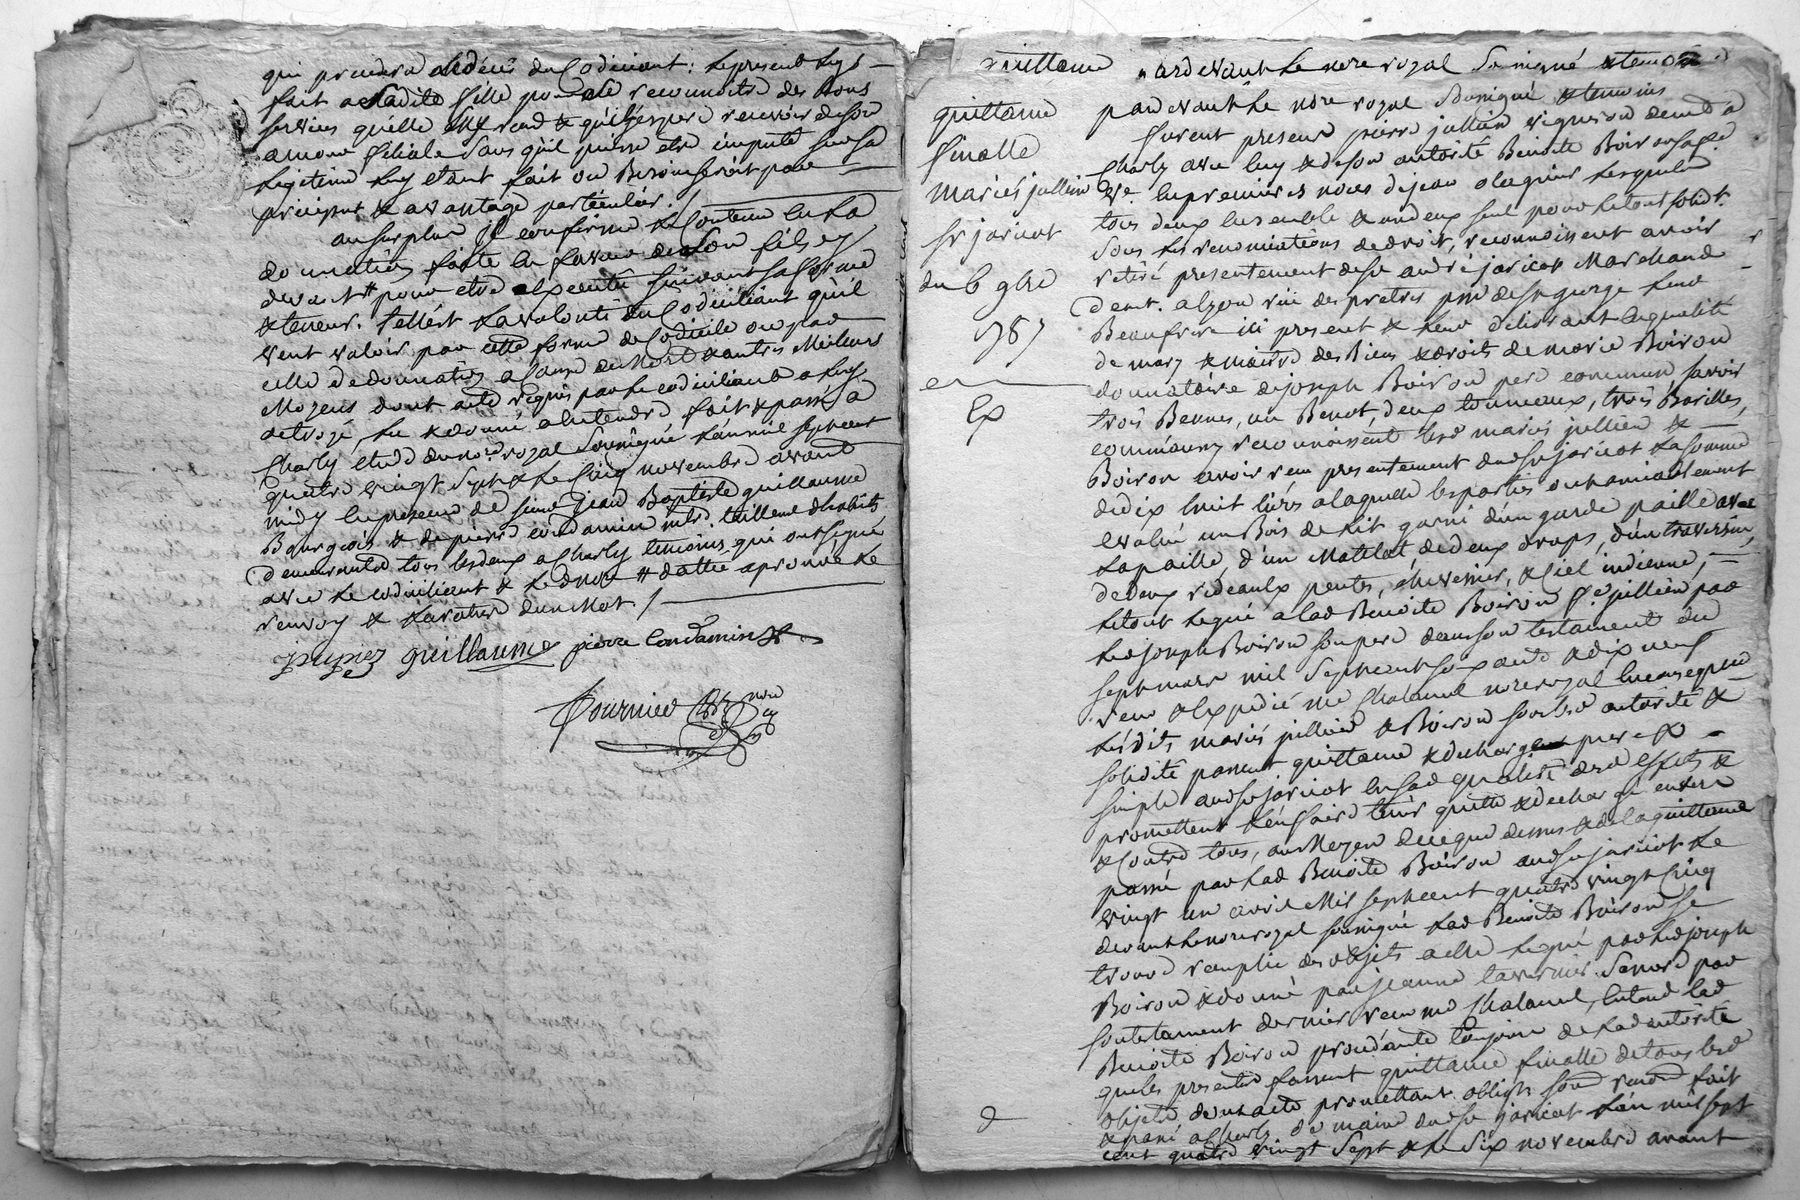 qui prendra au décès du Codiciant : le present legs
fait a ladite fille pour de reconnoitre des bons
services quelle luy rend & quil espere recevoir de son
amour filiale sans quil puisse etre imputé sur sa
legitime luy etant fait ou besoin seroit par
préciput & avantage particulier. /
au surplus il confirme le Contenu en la
donnation faite en faveur de son fils
devant pour etre executée suivant sa forme
& teneur. telle est la volonté du Codiciliant qu'il
veut valoir par cette forme de Codicile ou par
celle de donnation a cause de Mort & autres Meilleurs
Moyens dont acte requis par le codiciliant a luy
octroyé, lu & donné a entendre fait & passé a
Charly etude du nore royal soussigné l'an mil sept cent
quatre vingt sept & le Cinq novembre avant
midy en presence de sieur jean Baptiste guillaume
Bourgeois & de pierre condamin mtre. tailleur dhabits
demeurants tous les deux a Charly temoins qui ont signé
avec le codiciliant & led nore # dattée aprouvé le
renvoy & la rature d'un Mot. /
guillaume pierre Condamin
fournier nore
quittance ardevant le nore royal soussigné & temoins
quittance
finalle
mariés jullien
sr jaricot
du 6 9bre
1787
Ex
pardevant le nore royal soussigné & temoins
furent presens pierre jullien vigneron demt a
Charly avec luy & de son autorité Benoite Boiron sa fe.
Ve. en premieres noces de jean lesquels
tous deux ensemble & un deux seul pour le tout solidt.
sous les renonciations de droit, reconnoissent avoir
retiré presentement de sr andré jaricot Marchand
demt. a lyon rüe des pretres psse de st george leur
Beaufrere ici present & leur delivrant en qualité
de mary & maitre des Biens & droits de marie Boiron
donnataire de joseph Boiron pere commun savoir
trois Bennes, un Benot, deux tonneaux, trois Barilles,
comme aussy reconnoissent lesd mariés jullien &
Boiron avoir reçu presentement dud sr jaricot la somme
de dix huit livres a laquelle les parties ont amiablement
evalué un Bois de lit garni d'un garde paille avec
la paille, d'un Matelat, de deux draps, d'un traversin,
de deux rideaulx pentes, chevessier, & Ciel indienne,
le tout legué a lad Benoite Boiron fe. jullien par
led joseph Boiron son pere dans son testament du
sept mars mil sept cent soixante & dix neuf
reçu & expedié me Chalamel nore royal en consequence
lesdits mariés jullien & Boiron sous lad autorité &
solidité passent quittance & decharge pure &
simple aud sr jaricot en sad qualité desd effets &
promettent l'en faire tenir quitte & decharge envers
& Contre tous, au Moyen de ce que dessus & de la quittance
passé par lad Benoite Boiron aud sr jaricot le
vingt un avril Mil sept cent quatre vingt Cinq
devant le nore royal soussigné lad Benoite Boiron se
trouve remplie des objets a elle legué par led joseph
Boiron & donné par jeanne tavernier sa mere par
son testament dernier reçu me Chalamel, entend lad
Benoite Boiron procedante toujours de lad autorité
que les presentes fassent quittance finalle de tous lesd
objets dont acte promettant obligt sous renond fait
& passé a Charly dud sr jaricot l'an mil sept
cent quatre vingt sept & le six novembre avant